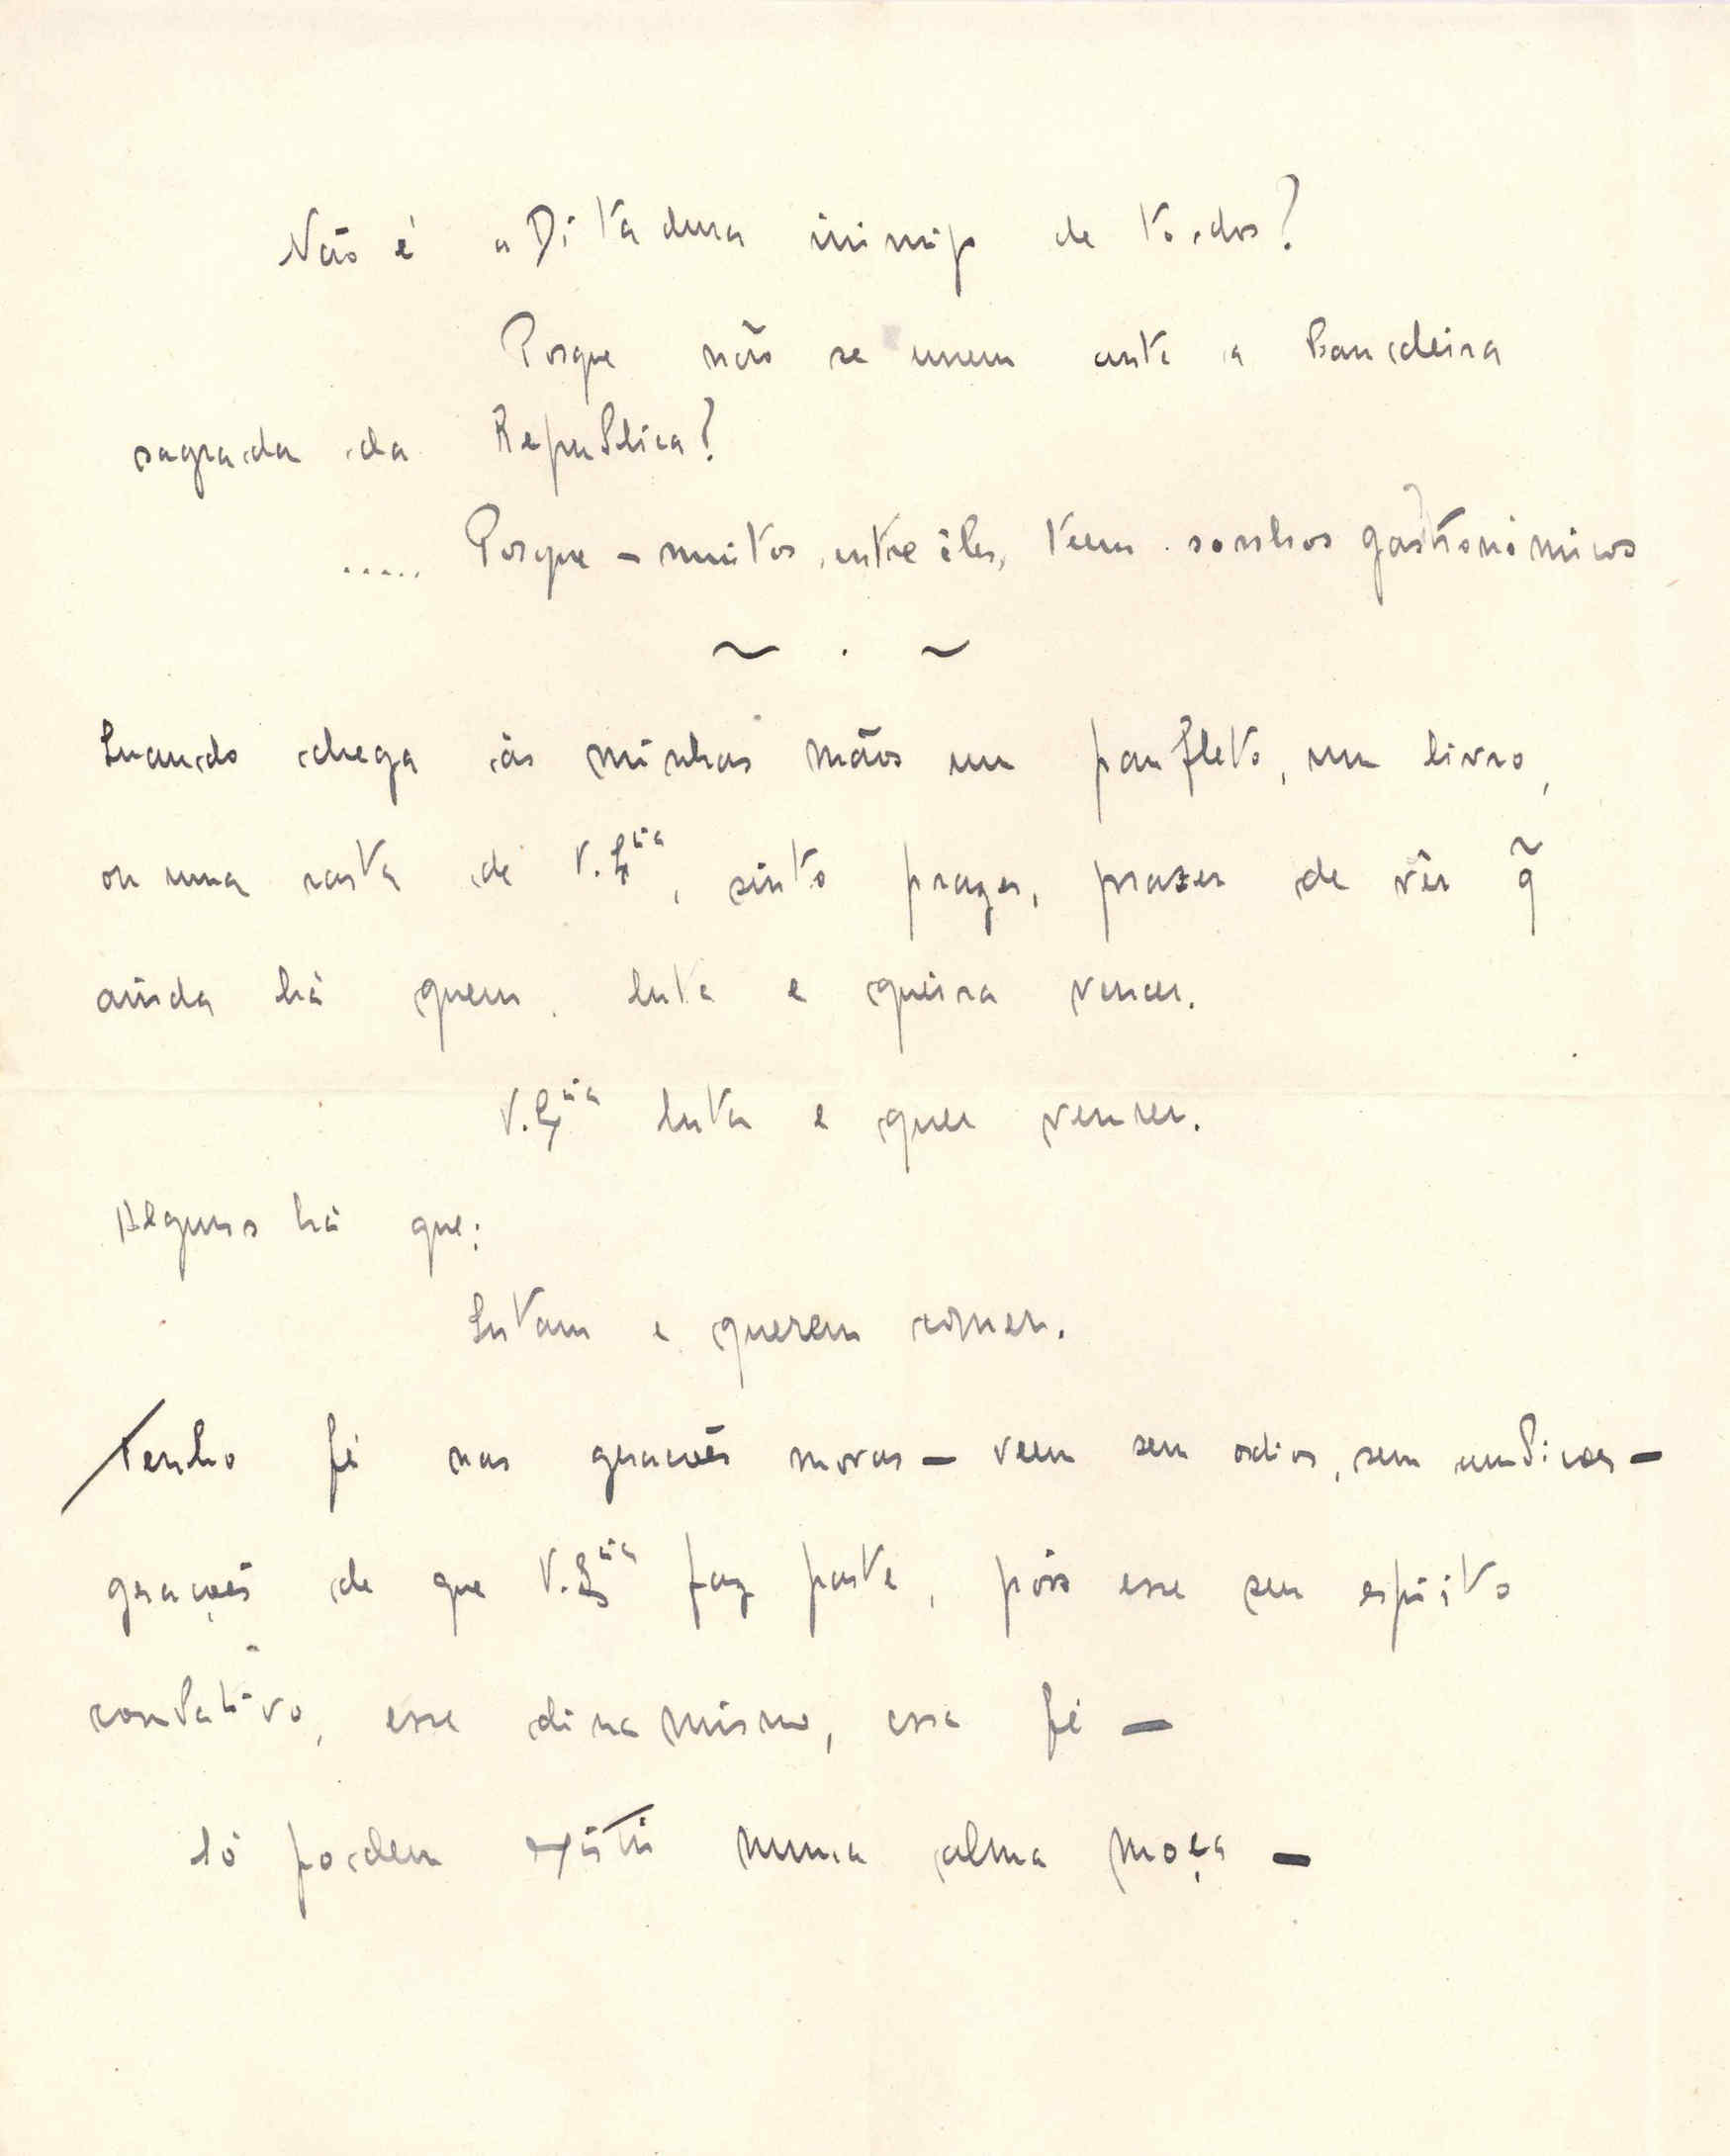 Não é a Ditadura inimiga de todos?
Porque não se unem ante a Bandeira
sagrada da Republica?
..... Porque – muitos, entre êles, teem sonhos gastronómicos
~ . ~
Quando chega às minhas mãos um panfleto, um livro,
ou uma carta de V. Ex.cia, sinto prazer, prazer de vêr q̃
ainda há quem lute e queira vencer.
V. Ex.cia luta e quer vencer.
Alguns há que:
Lutam e querem comer.
Tenho fé nas gerações novas – veem sem odios, sem ambições –
gerações de que V. Ex.cia faz parte, pois esse seu espírito
combativo, esse dinamismo, essa fé –
só podem existir numa alma moça –